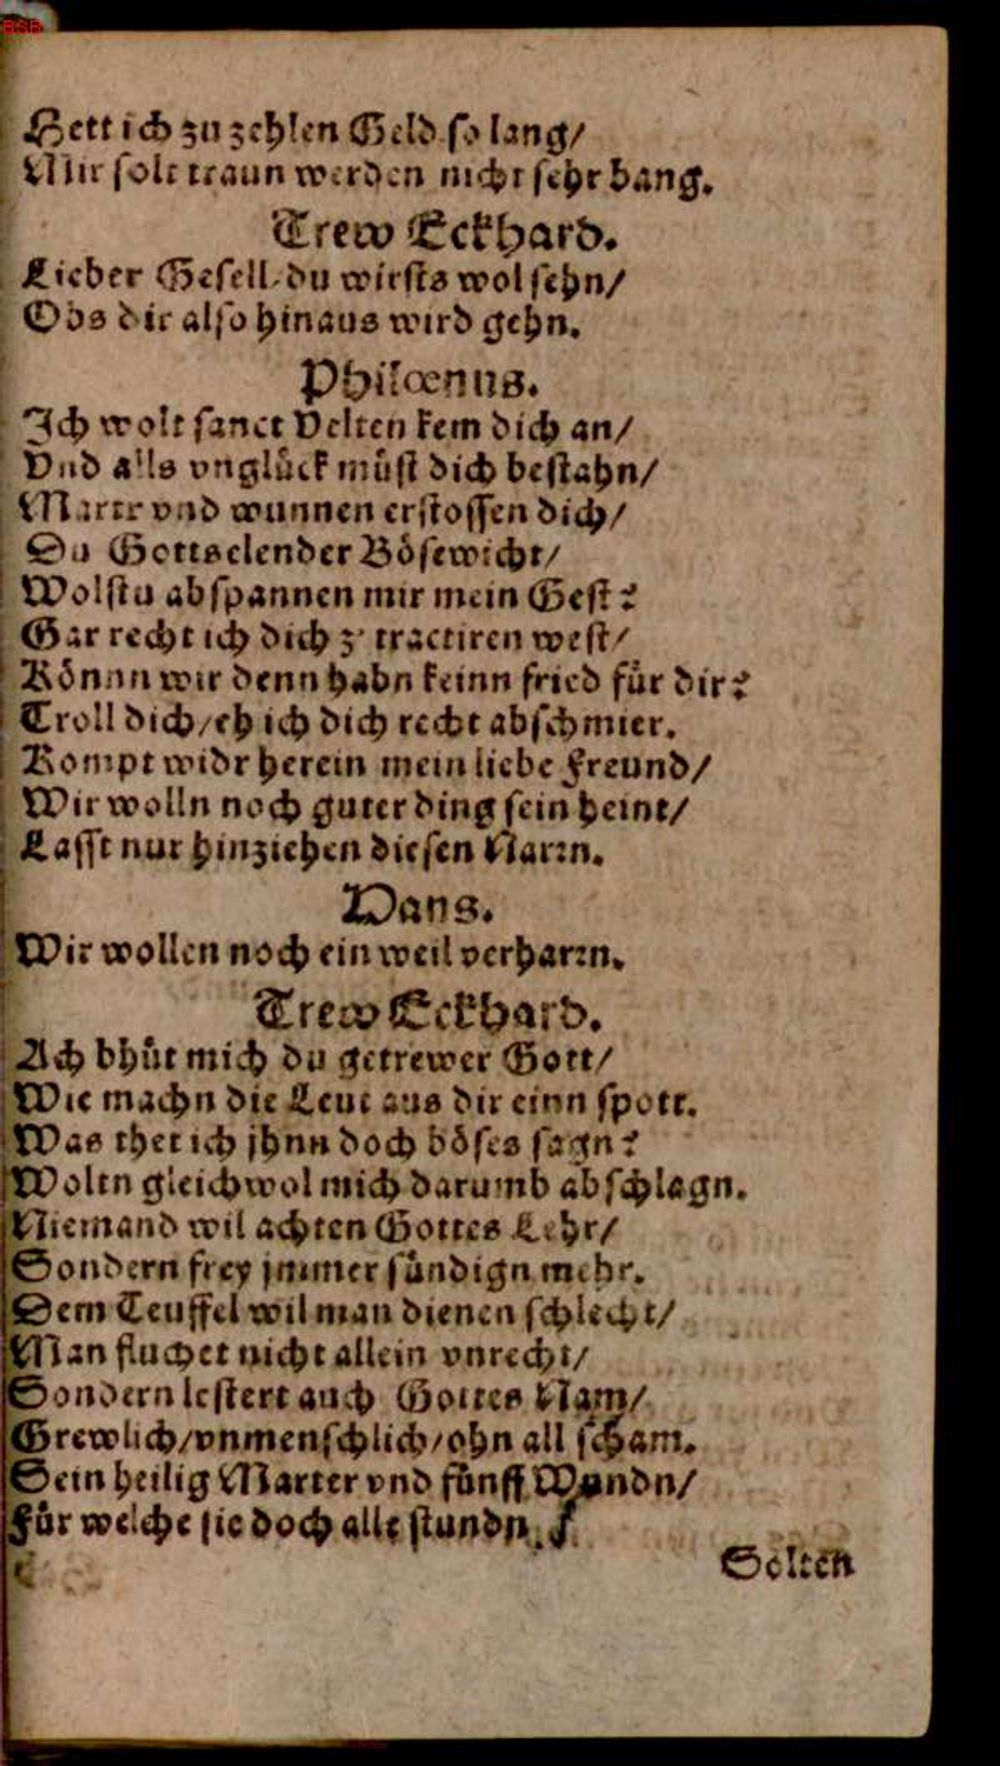 BSB
Hett ich zu zehlen Geld so lang/
Mir solt traun werden nicht sehr bang.
Trew Eckhard.
Lieber Gesell/du wirsts wol sehn/
Obs dir also hinaus wird gehn.
Philœnus.
Ich wolt sanct Velten kem dich an/
Vnd alls vnglůck můst dich bestahn/
Martr vnd wunnen erstossen dich/
Du Gottselender Bösewicht/
Wolstu abspannen mir mein Gest?
Gar recht ich dich z' tractiren west/
Könnn wir denn habn keinn fried für dir?
Troll dich/eh ich dich recht abschmier.
Kompt widr herein mein liebe Freund/
Wir wolln noch guter ding sein heint/
Lasst nur hinziehen diesen Narrn.
Dans.
Wir wollen noch ein weil verharrn.
Trew Eckhard.
Ach bhůt mich du getrewer Gott/
Wie machn die Leut aus dir einn spott.
Was thet ich jhnn doch böses sagn?
Woltn gleichwol mich darumb abschlagn.
Niemand wil achten Gottes Lehr/
Sondern frey jmmer sůndign mehr.
Dem Teuffel wil man dienen schlecht/
Man fluchet nicht allein vnrecht/
Sondern lestert auch Gottes Nam/
Grewlich/vnmenschlich/ohn all scham.
Sein heilig Marter vnd fůnff Wundn/
Fůr welche sie doch alle stundn
Solten